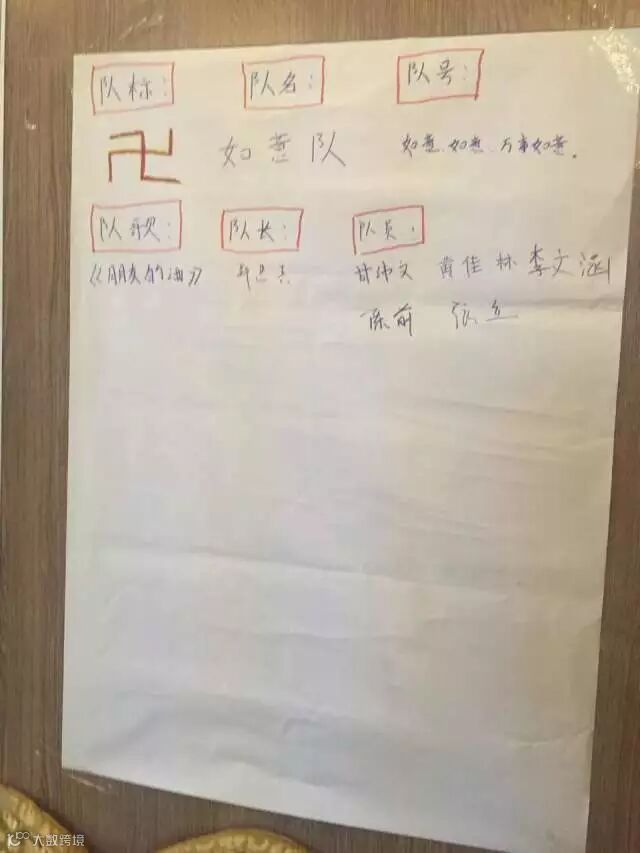 队标： 队名： 队号：
卍 如意队 如意、如意、万事如意。
队歌： 队长： 队员：
《朋友的酒》 甘沛文 黄佳林 李文涵
陈前 张
大数跨境